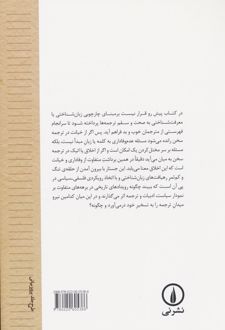 در کتاب پیش رو قرار نیست برمبنای چارچوبی زبان‌شناختی یا
معرفت‌شناختی به صحت و سقم ترجمه‌ها پرداخته شود تا سرانجام
فهرستی از مترجمان خوب و بد فراهم آید. پس اگر از خیانت در ترجمه
سخن رانده می‌شود مسئله عدم‌وفاداری به کلمه یا زبان مبدأ نیست، بلکه
مسئله بر سر مختل کردن یک امکان است و اگر از اخلاق یا اتیک در ترجمه
سخن به میان می‌آید دقیقاً در همین برداشت متفاوت از وفاداری و خیانت
است که اخلاق معنا می‌یابد. این جستار با بیرون آمدن از حلقه‌ی تنگ
و کم‌ثمر رهیافت‌های زبان‌شناختی و با اتخاذ رویکردی فلسفی-سیاسی در
پی آن است که ببیند چگونه رویدادهای تاریخی در برهه‌های متفاوت بر
نمودار سیاست ادبیات و ترجمه اثر می‌گذارند و در این میان کدامین نیرو
میدان ترجمه را به تسخیر خود درمی‌آورد و چگونه؟
نشر نی